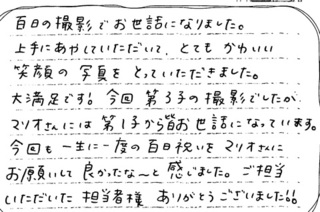 百日の撮影でお世話になりました。
上手にあやしていただいて、とてもかわいい
笑顔の写真をとっていただきました。
大満足です！今回第3子の撮影でしたが、
マリオさんには第1子から皆お世話になっています。
今回も一生に一度の百日祝いをマリオさんに
お願いして良かったな～と感じました。ご担当
いただいた担当者様ありがとうございました!!